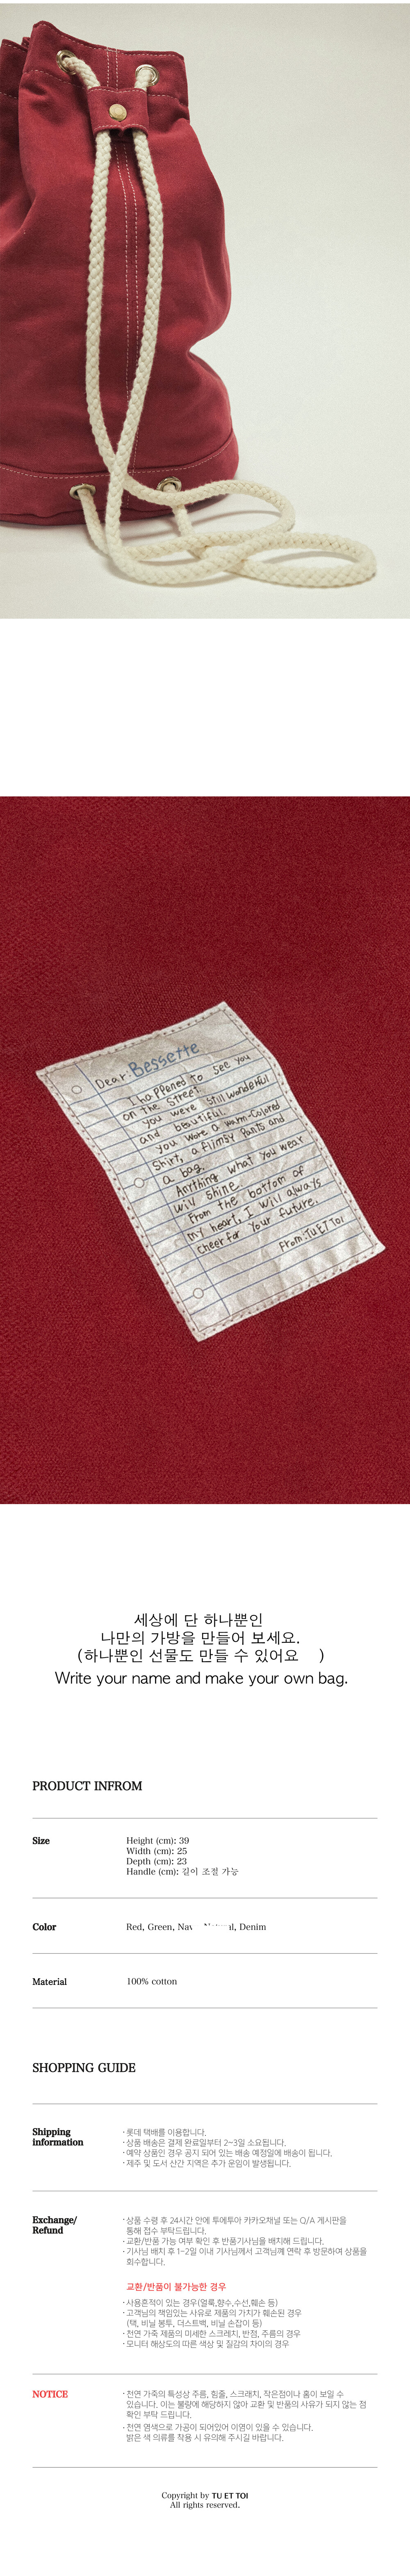 Dear. Bessette
I happened to see you
on the street.
you were still wonderful
and beautiful.
you wore a warm-colored
shirt, a flimsy pants and
a bag.
Anything what you wear
will shine.
From the bottom of
my heart, I will always
cheer for your future.
From: TU ET TOI
세상에 단 하나뿐인
나만의 가방을 만들어 보세요.
(하나뿐인 선물도 만들 수 있어요 )
Write your name and make your own bag.
PRODUCT INFROM
Size
Height (cm): 39
Width (cm): 25
Depth (cm): 23
Handle (cm): 길이 조절 가능
Color
Red, Green, Denim
Material
100% cotton
SHOPPING GUIDE
Shipping
information
· 롯데 택배를 이용합니다.
· 상품 배송은 결제 완료일부터 2~3일 소요됩니다.
· 예약 상품인 경우 공지 되어 있는 배송 예정일에 배송이 됩니다.
· 제주 및 도서 산간 지역은 추가 운임이 발생됩니다.
Exchange/
Refund
· 상품 수령 후 24시간 안에 투에투아 카카오채널 또는 Q/A 게시판을
통해 접수 부탁드립니다.
· 교환/반품 가능 여부 확인 후 반품기사님을 배치해 드립니다.
· 기사님 배치 후 1~2일 이내 기사님께서 고객님께 연락 후 방문하여 상품을
회수합니다.
교환/반품이 불가능한 경우
· 사용흔적이 있는 경우(얼룩,향수,수선,훼손 등)
· 고객님의 책임있는 사유로 제품의 가치가 훼손된 경우
(택, 비닐 봉투, 더스트백, 비닐 손잡이 등)
· 천연 가죽 제품의 미세한 스크레치, 반점, 주름의 경우
· 모니터 해상도의 따른 색상 및 질감의 차이의 경우
NOTICE
· 천연 가죽의 특성상 주름, 힘줄, 스크래치, 작은점이나 홈이 보일 수
있습니다. 이는 불량에 해당하지 않아 교환 및 반품의 사유가 되지 않는 점
확인 부탁 드립니다.
· 천연 염색으로 가공이 되어있어 이염이 있을 수 있습니다.
밝은 색 의류를 착용 시 유의해 주시길 바랍니다.
Copyright by TU ET TOI
All rights reserved.